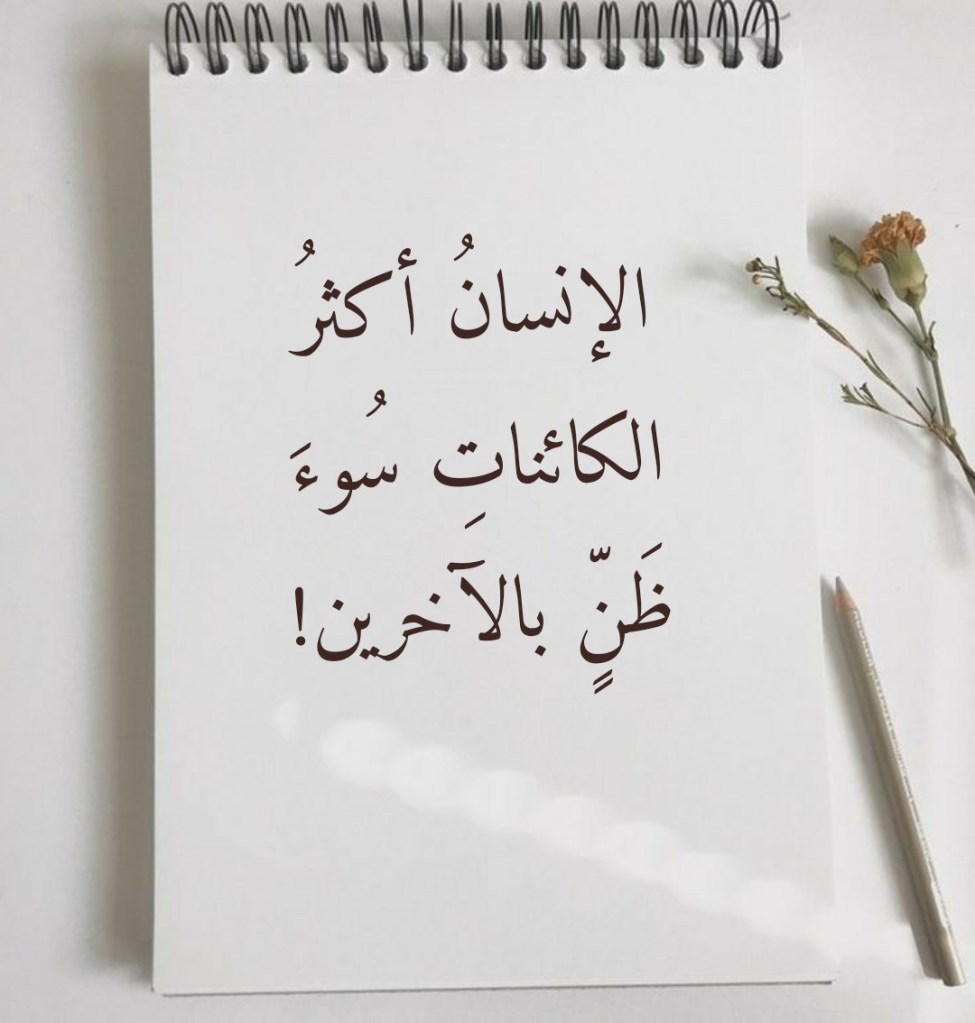 الإنسانُ أكثرُ
الكائناتِ سُوءَ
ظَنٍّ بالآخرين!